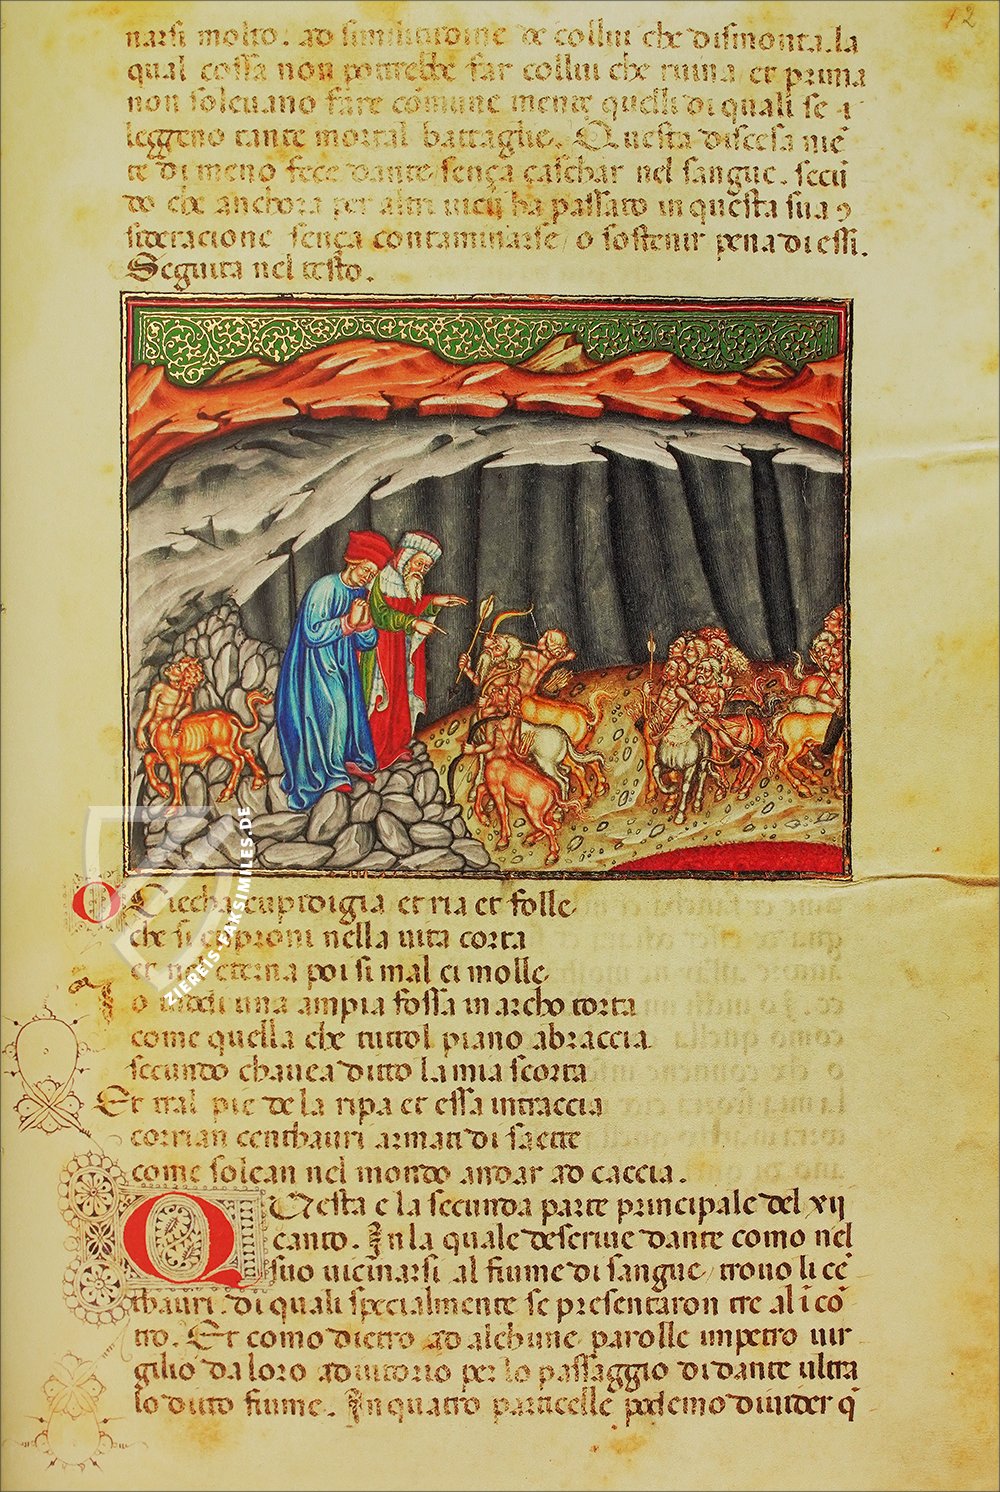 12
narsi molto. ad similitudine de collui che dismonta. la
qual cossa non potrebbe far collui che ruina et prima
non solevano fare comune mente quelli di quali se
leggeno tante mortal battaglie. Questa discesa niē
te di meno fece dante senza caschar nel sangue. secū
do che anchora per altri vicij ha passato in questa sua ꝯ
sideracione senza contaminarse / o sostenir pena di essi.
Seguita nel testo.
O Ciecha cupidigia et ria et folle
che si ci sproni nella vita corta
et ne eterna poi si mal ci molle
Io vidi una ampia fossa in archo torta
come quella che tuttol piano abraccia
secundo chavea ditto la mia scorta
Et tral pie de la ripa et essa intraccia
corrian centhauri armati di saette
come solean nel mondo andar ad caccia.
Questa e la secunda parte principale del xij
canto. In la quale descrive dante como nel
suo vicinarsi al fiume di sangue / trovo li cē
thauri. di quali specialmente se presentaron tre al īcō
tro. Et como dietro ad alchune parolle impetro vir
gilio da loro adiutorio per lo passaggio di dante ultra
lo dito fiume. In quatro particelle podemo divider q̄
ZIEREIS-FAKSIMILES.DE